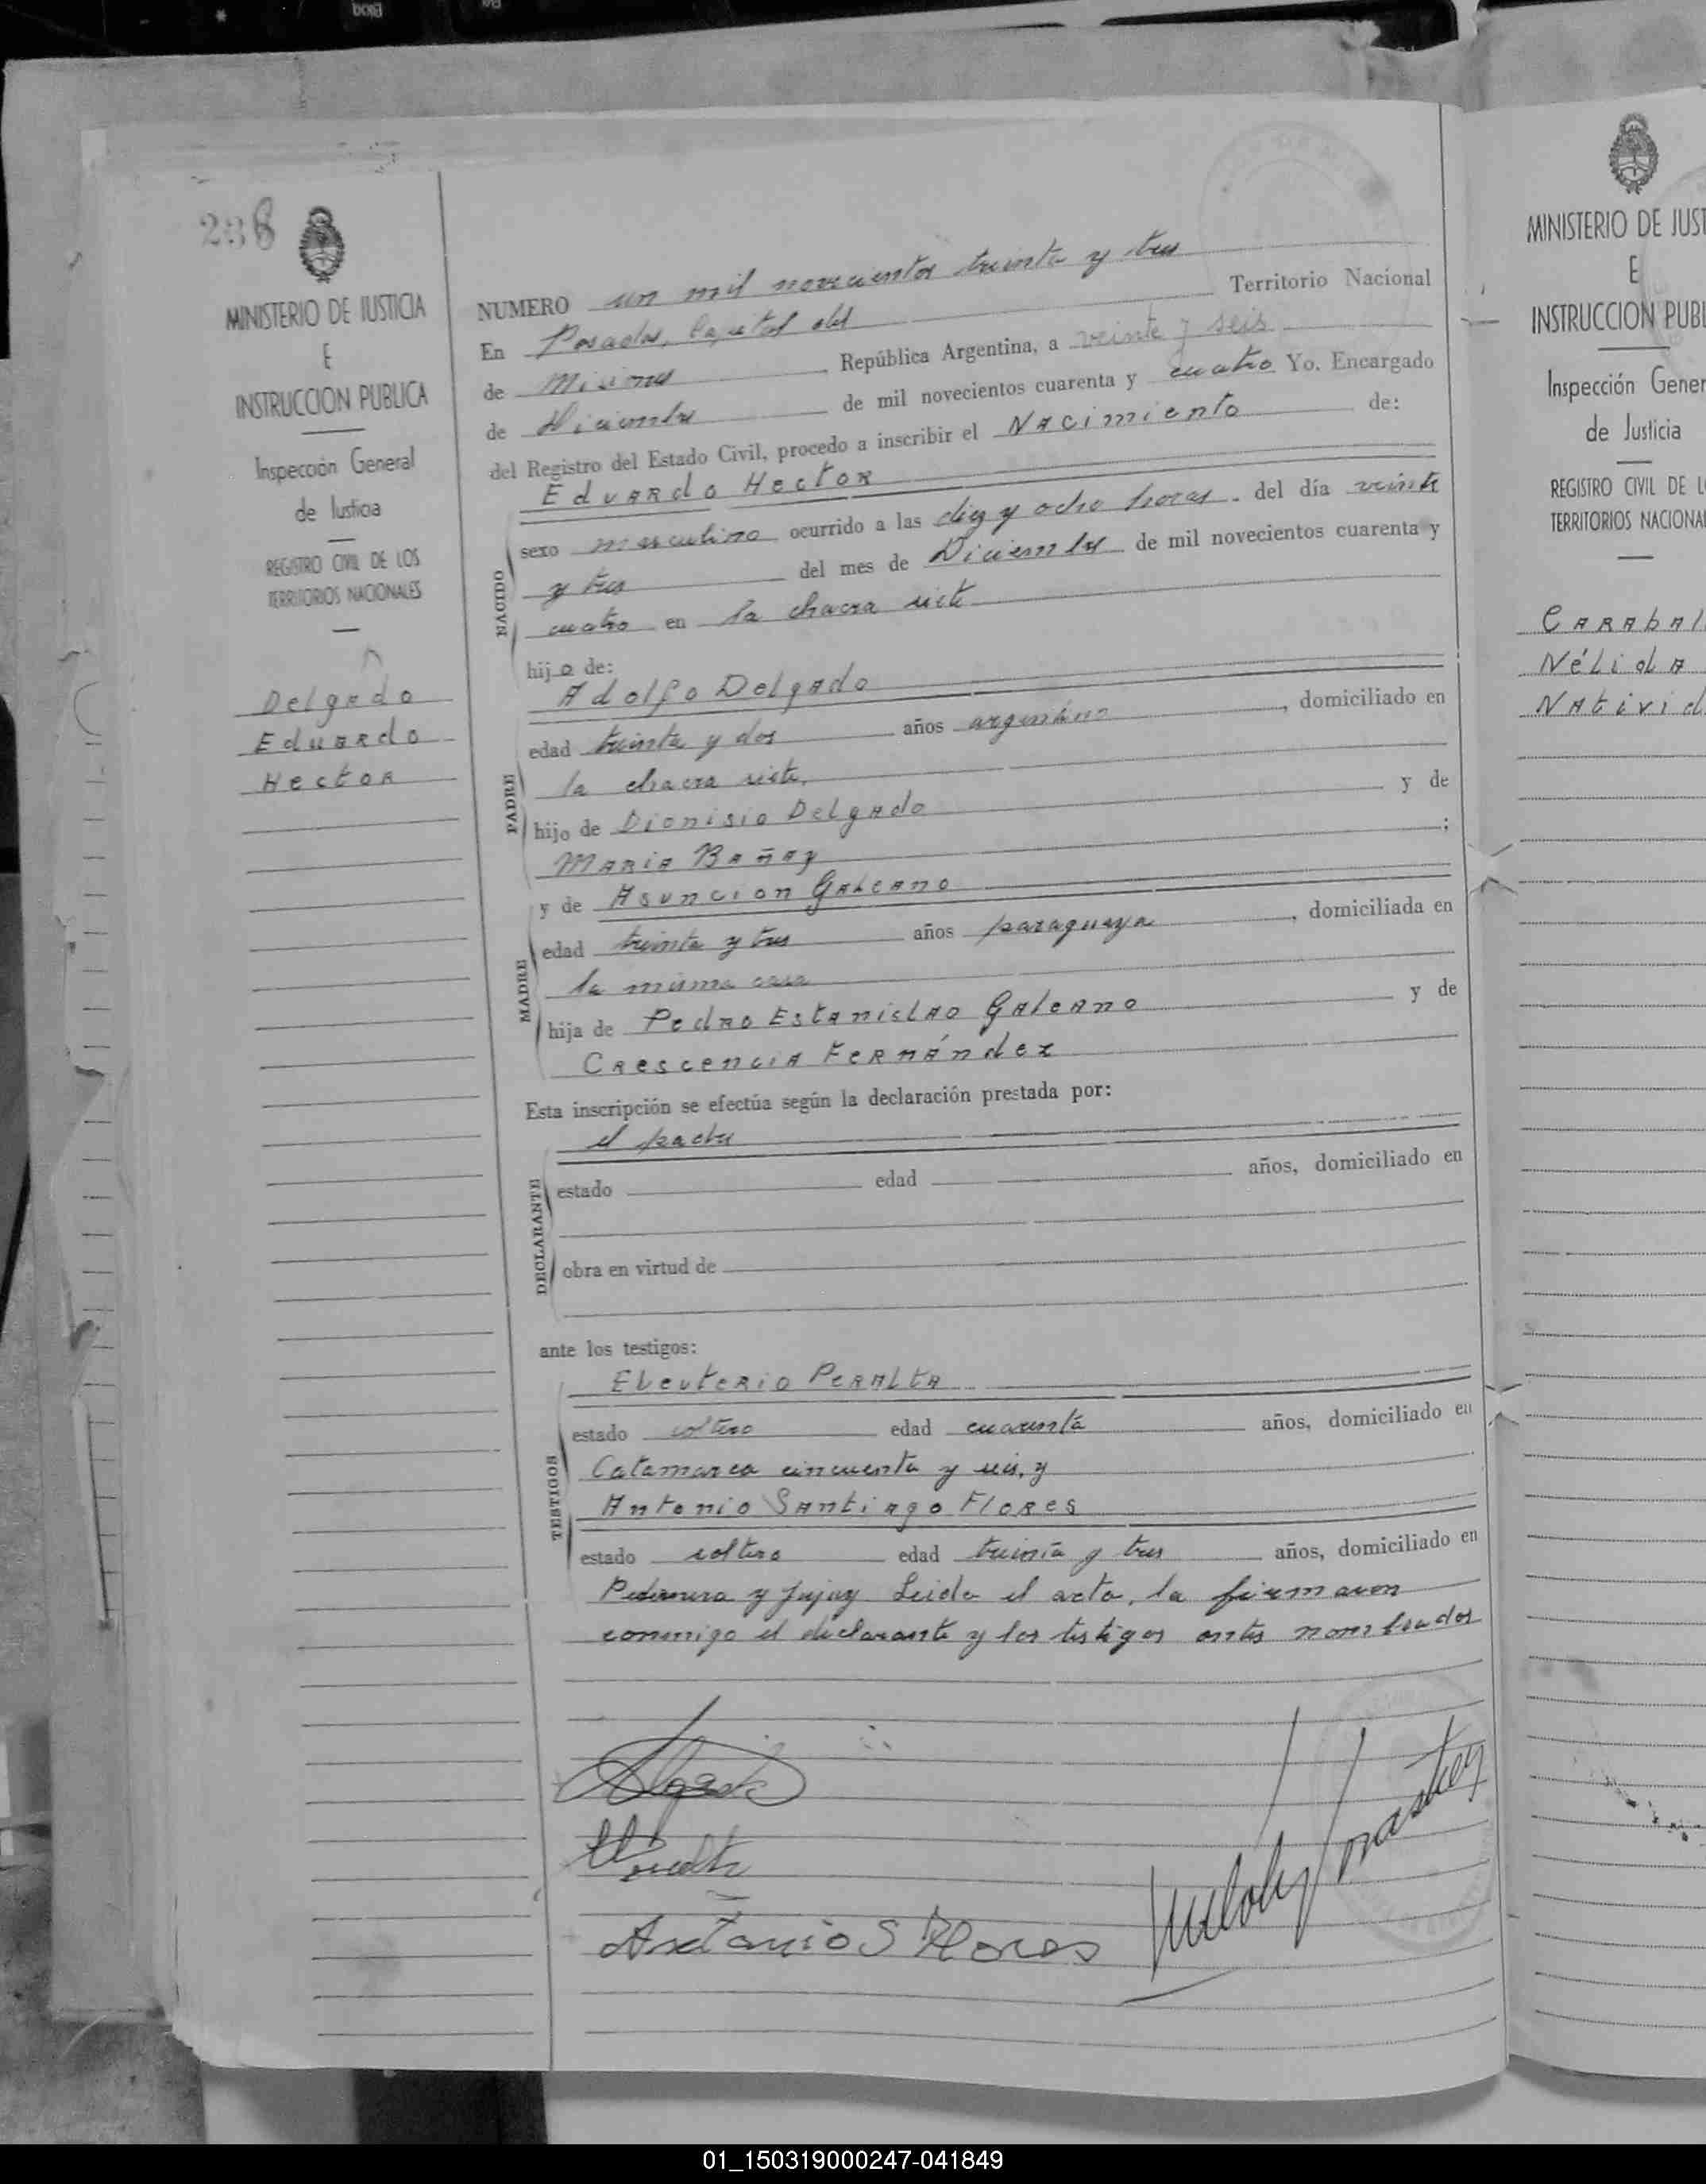 238
MINISTERIO DE JUSTICIA
E
INSTRUCCION PUBLICA
Inspección General
de Justicia
REGISTRO CIVIL DE LOS
TERRITORIOS NACIONALES
Delgado
Eduardo
Hector
NUMERO un mil novecientos treinta y tres
En Posadas, Capital del Territorio Nacional
de Misiones República Argentina, a veinte y seis
de Diciembre de mil novecientos cuarenta y cuatro Yo, Encargado
del Registro del Estado Civil, procedo a inscribir el Nacimiento de:
Eduardo Hector
NACIDO
sexo masculino ocurrido a las diez y ocho horas. del día veinte
y tres del mes de Diciembre de mil novecientos cuarenta y
cuatro en la chacra siete
hijo de:
Adolfo Delgado
PADRE
edad treinta y dos años argentino, domiciliado en
la chacra siete,
hijo de Dionisio Delgado y de
Maria Bañay;
y de Asuncion Galeano
MADRE
edad treinta y tres años paraguaya, domiciliada en
la misma casa
hija de Pedro Estanislao Galeano y de
Crescencia Fernández
Esta inscripción se efectúa según la declaración prestada por:
el padre
DECLARANTE
estado edad años, domiciliado en
obra en virtud de
ante los testigos:
Eleuterio Peralta
TESTIGOS
estado soltero edad cuarenta años, domiciliado en
Catamarca cincuenta y seis, y
Antonio Santiago Flores
estado soltero edad treinta y tres años, domiciliado en
Pedernera y Jujuy Leida el acta, la firmaron
conmigo el declarante y los testigos antes nombrados
Antonio S Flores
MINISTERIO DE JUST
E
INSTRUCCION PUBL
Inspección Gener
de Justicia
REGISTRO CIVIL DE L
TERRITORIOS NACIONA
Carabal
Nélida
Nativid
01_150319000247-041849